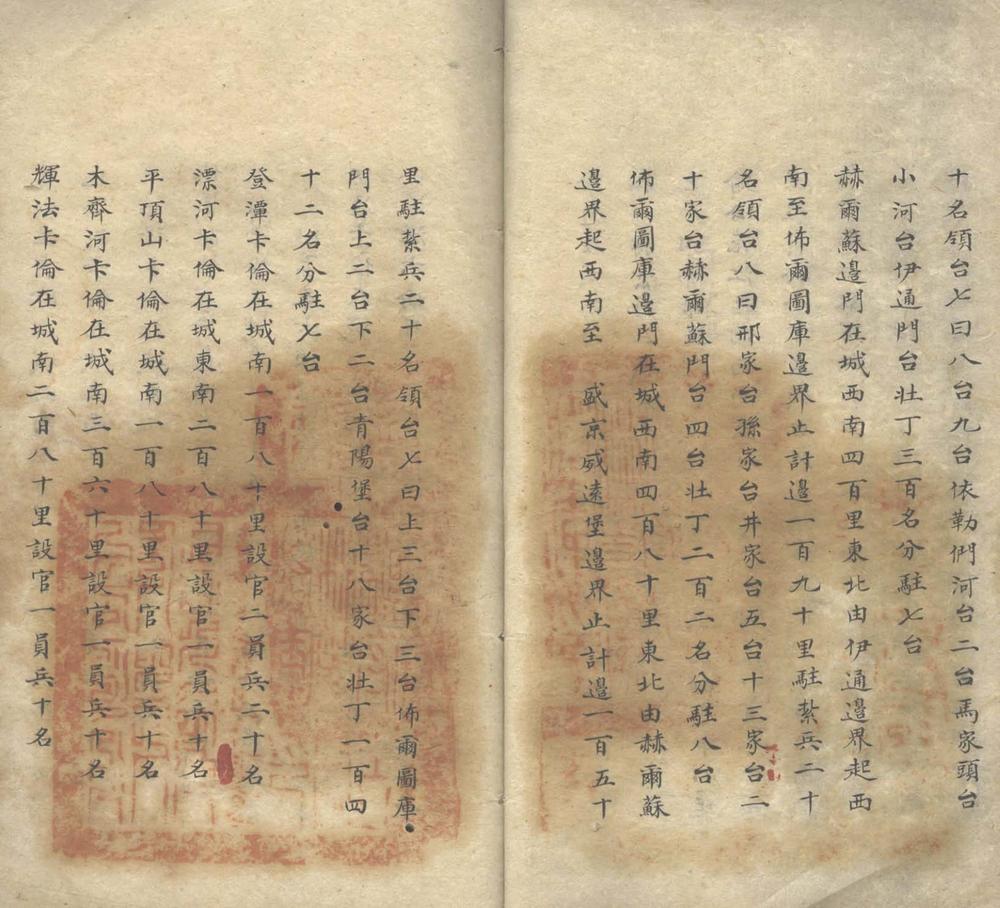 十名領台七曰八台九台依勒們河台二台馬家頭台
小河台伊通門台壯丁三百名分駐七台
赫爾蘇邊門在城西南四百里東北由伊通邊界起西
南至佈爾圖庫邊界止計邊一百九十里駐紮兵二十
名領台八曰邢家台孫家台井家台五台十三家台二
十家台赫爾蘇門台四台壯丁二百二名分駐八台
佈爾圖庫邊門在城西南四百八十里東北由赫爾蘇
邊界起西南至 盛京威遠堡邊界止計邊一百五十
里駐紮兵二十名領台七曰上三台下三台佈爾圖庫
門台上二台下二台青陽堡台十八家台壯丁一百四
十二名分駐七台
登潭卡倫在城南一百八十里設官二員兵二十名
漂河卡倫在城東南二百八十里設官一員兵十名
平頂山卡倫在城南一百八十里設官一員兵十名
木齊河卡倫在城南三百六十里設官一員兵十名
輝法卡倫在城南二百八十里設官一員兵十名